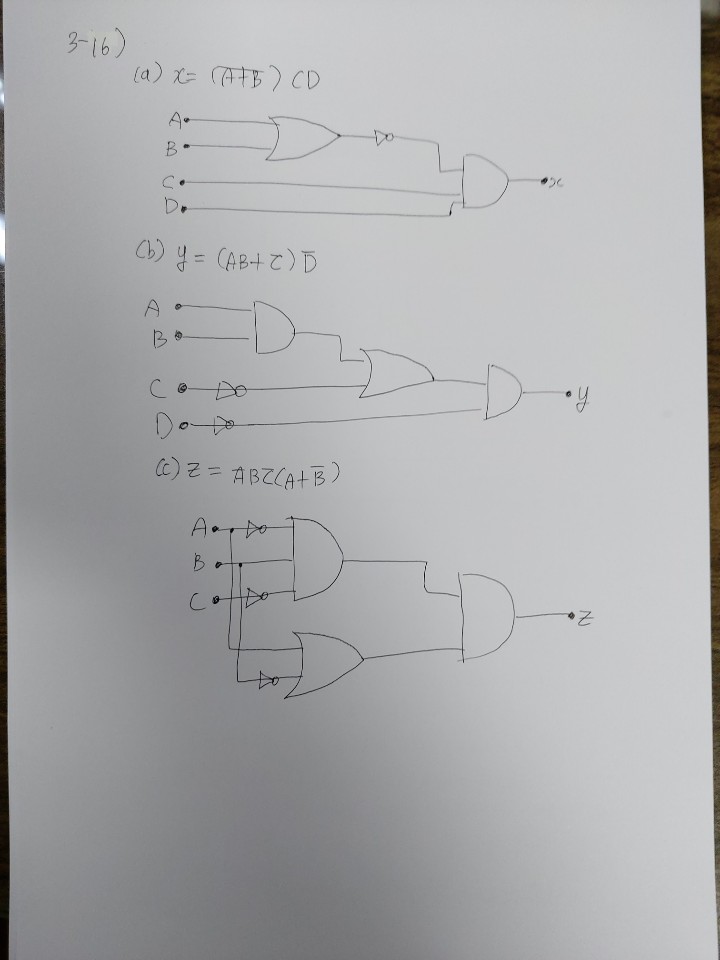 3-16)
(a) x = (A̅+̅B̅) CD
A
B
C
D
x
(b) y = (AB + C̅) D̅
A
B
C
D
y
(c) z = A̅BC̅(A + B̅)
A
B
C
z